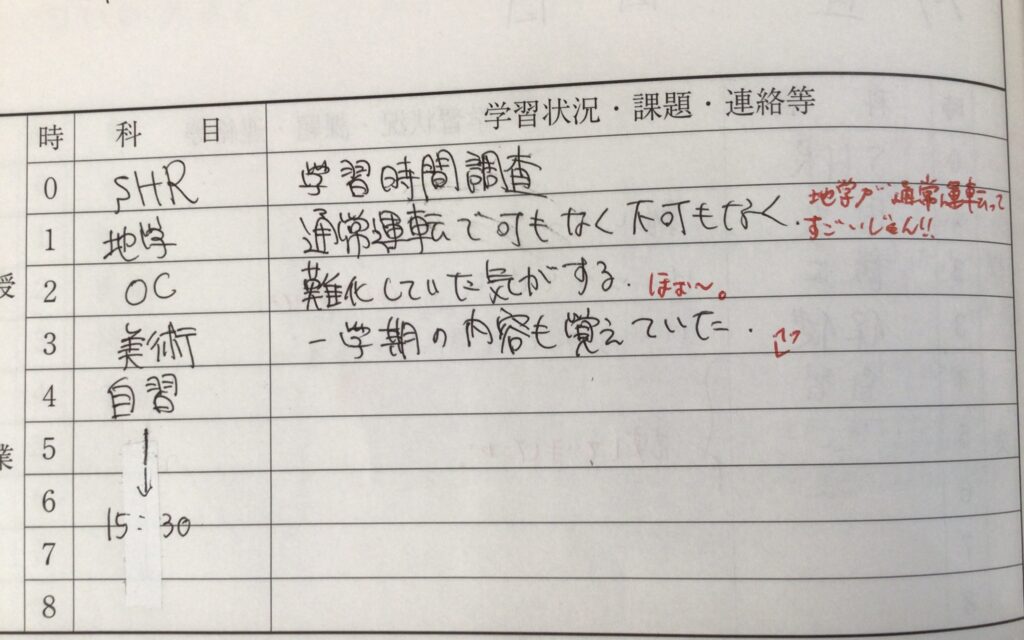 時 科 目 学習状況・課題・連絡等
0 SHR 学習時間調査
1 地学 通常運転で可もなく不可もなく. 地学が通常運転って
すごいじゃん!!
2 OC 難化していた気がする. ほぉ〜。
3 美術 一学期の内容も覚えていた.
4 自習
5
6
15:30
7
8
授
業